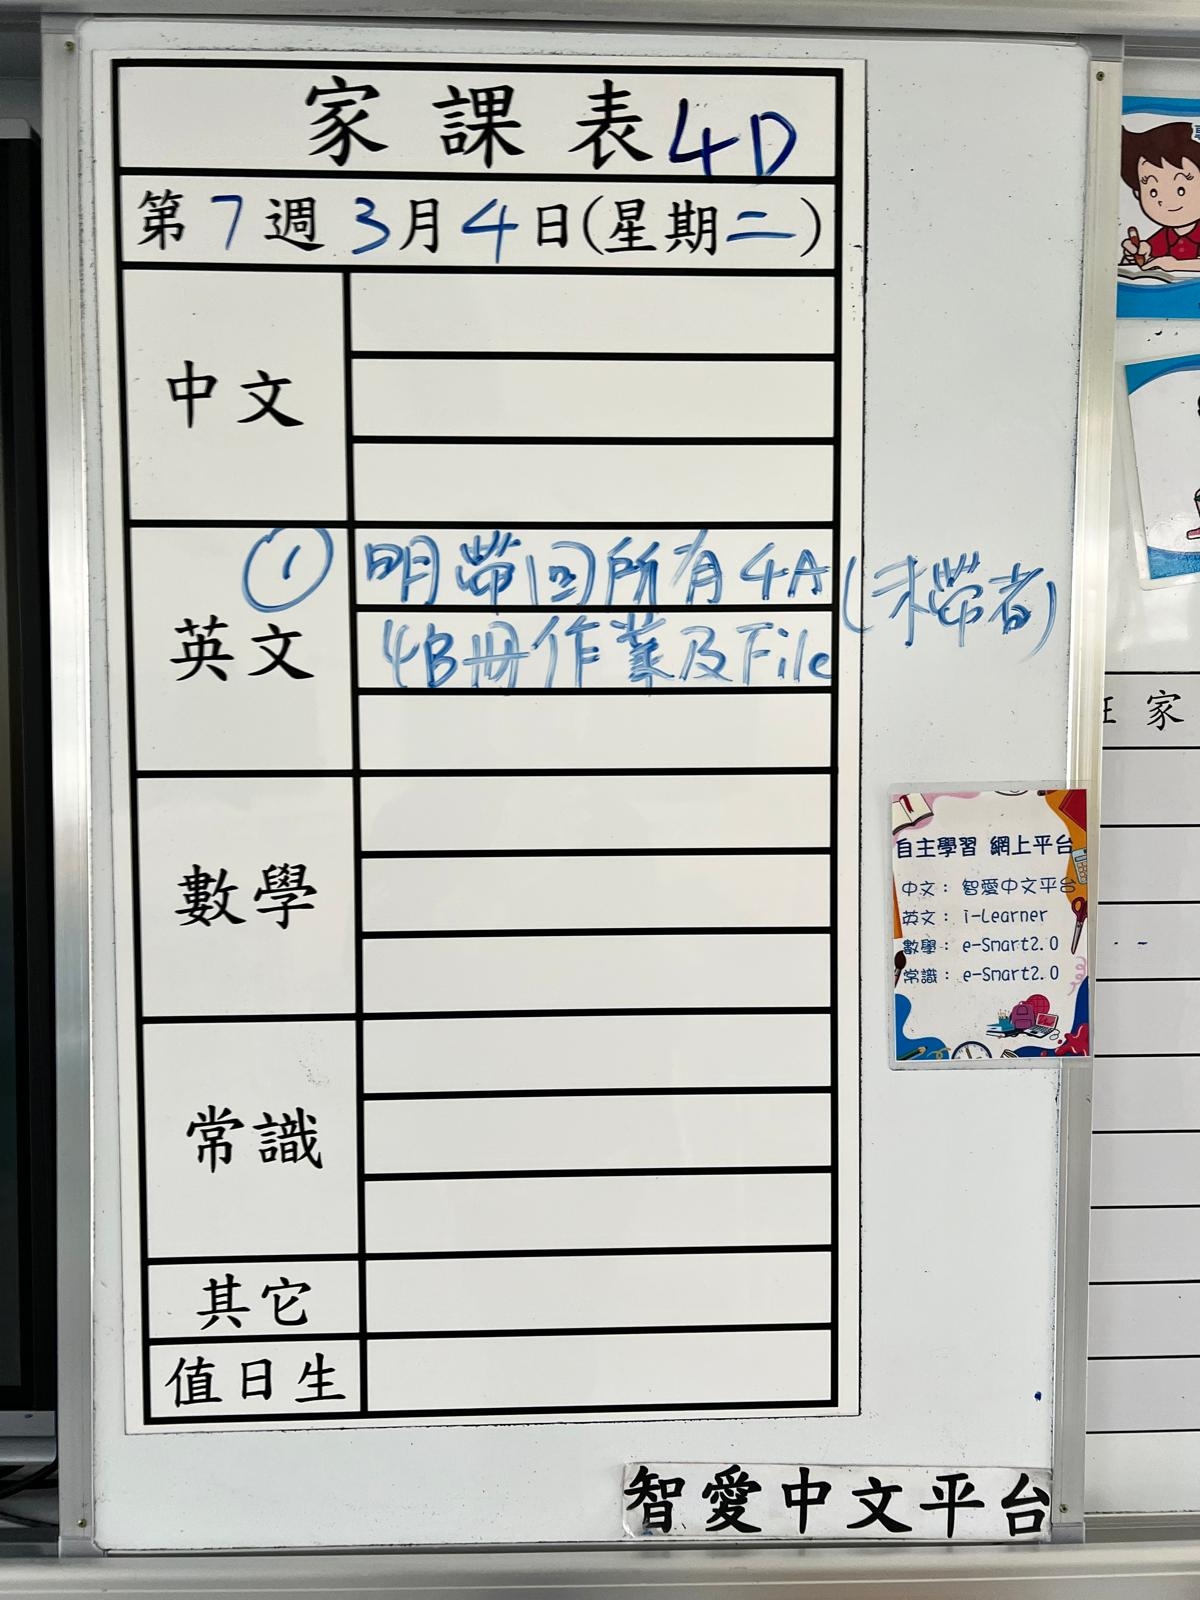 家課表 4D
第 7 週 3 月 4 日(星期二)
中文
英文
① 明帶回所有4A (未帶者)
4B冊作業及File
數學
常識
其它
值日生
自主學習 網上平台
中文: 智愛中文平台
英文: i-Learner
數學: e-Smart2.0
常識: e-Smart2.0
智愛中文平台
家